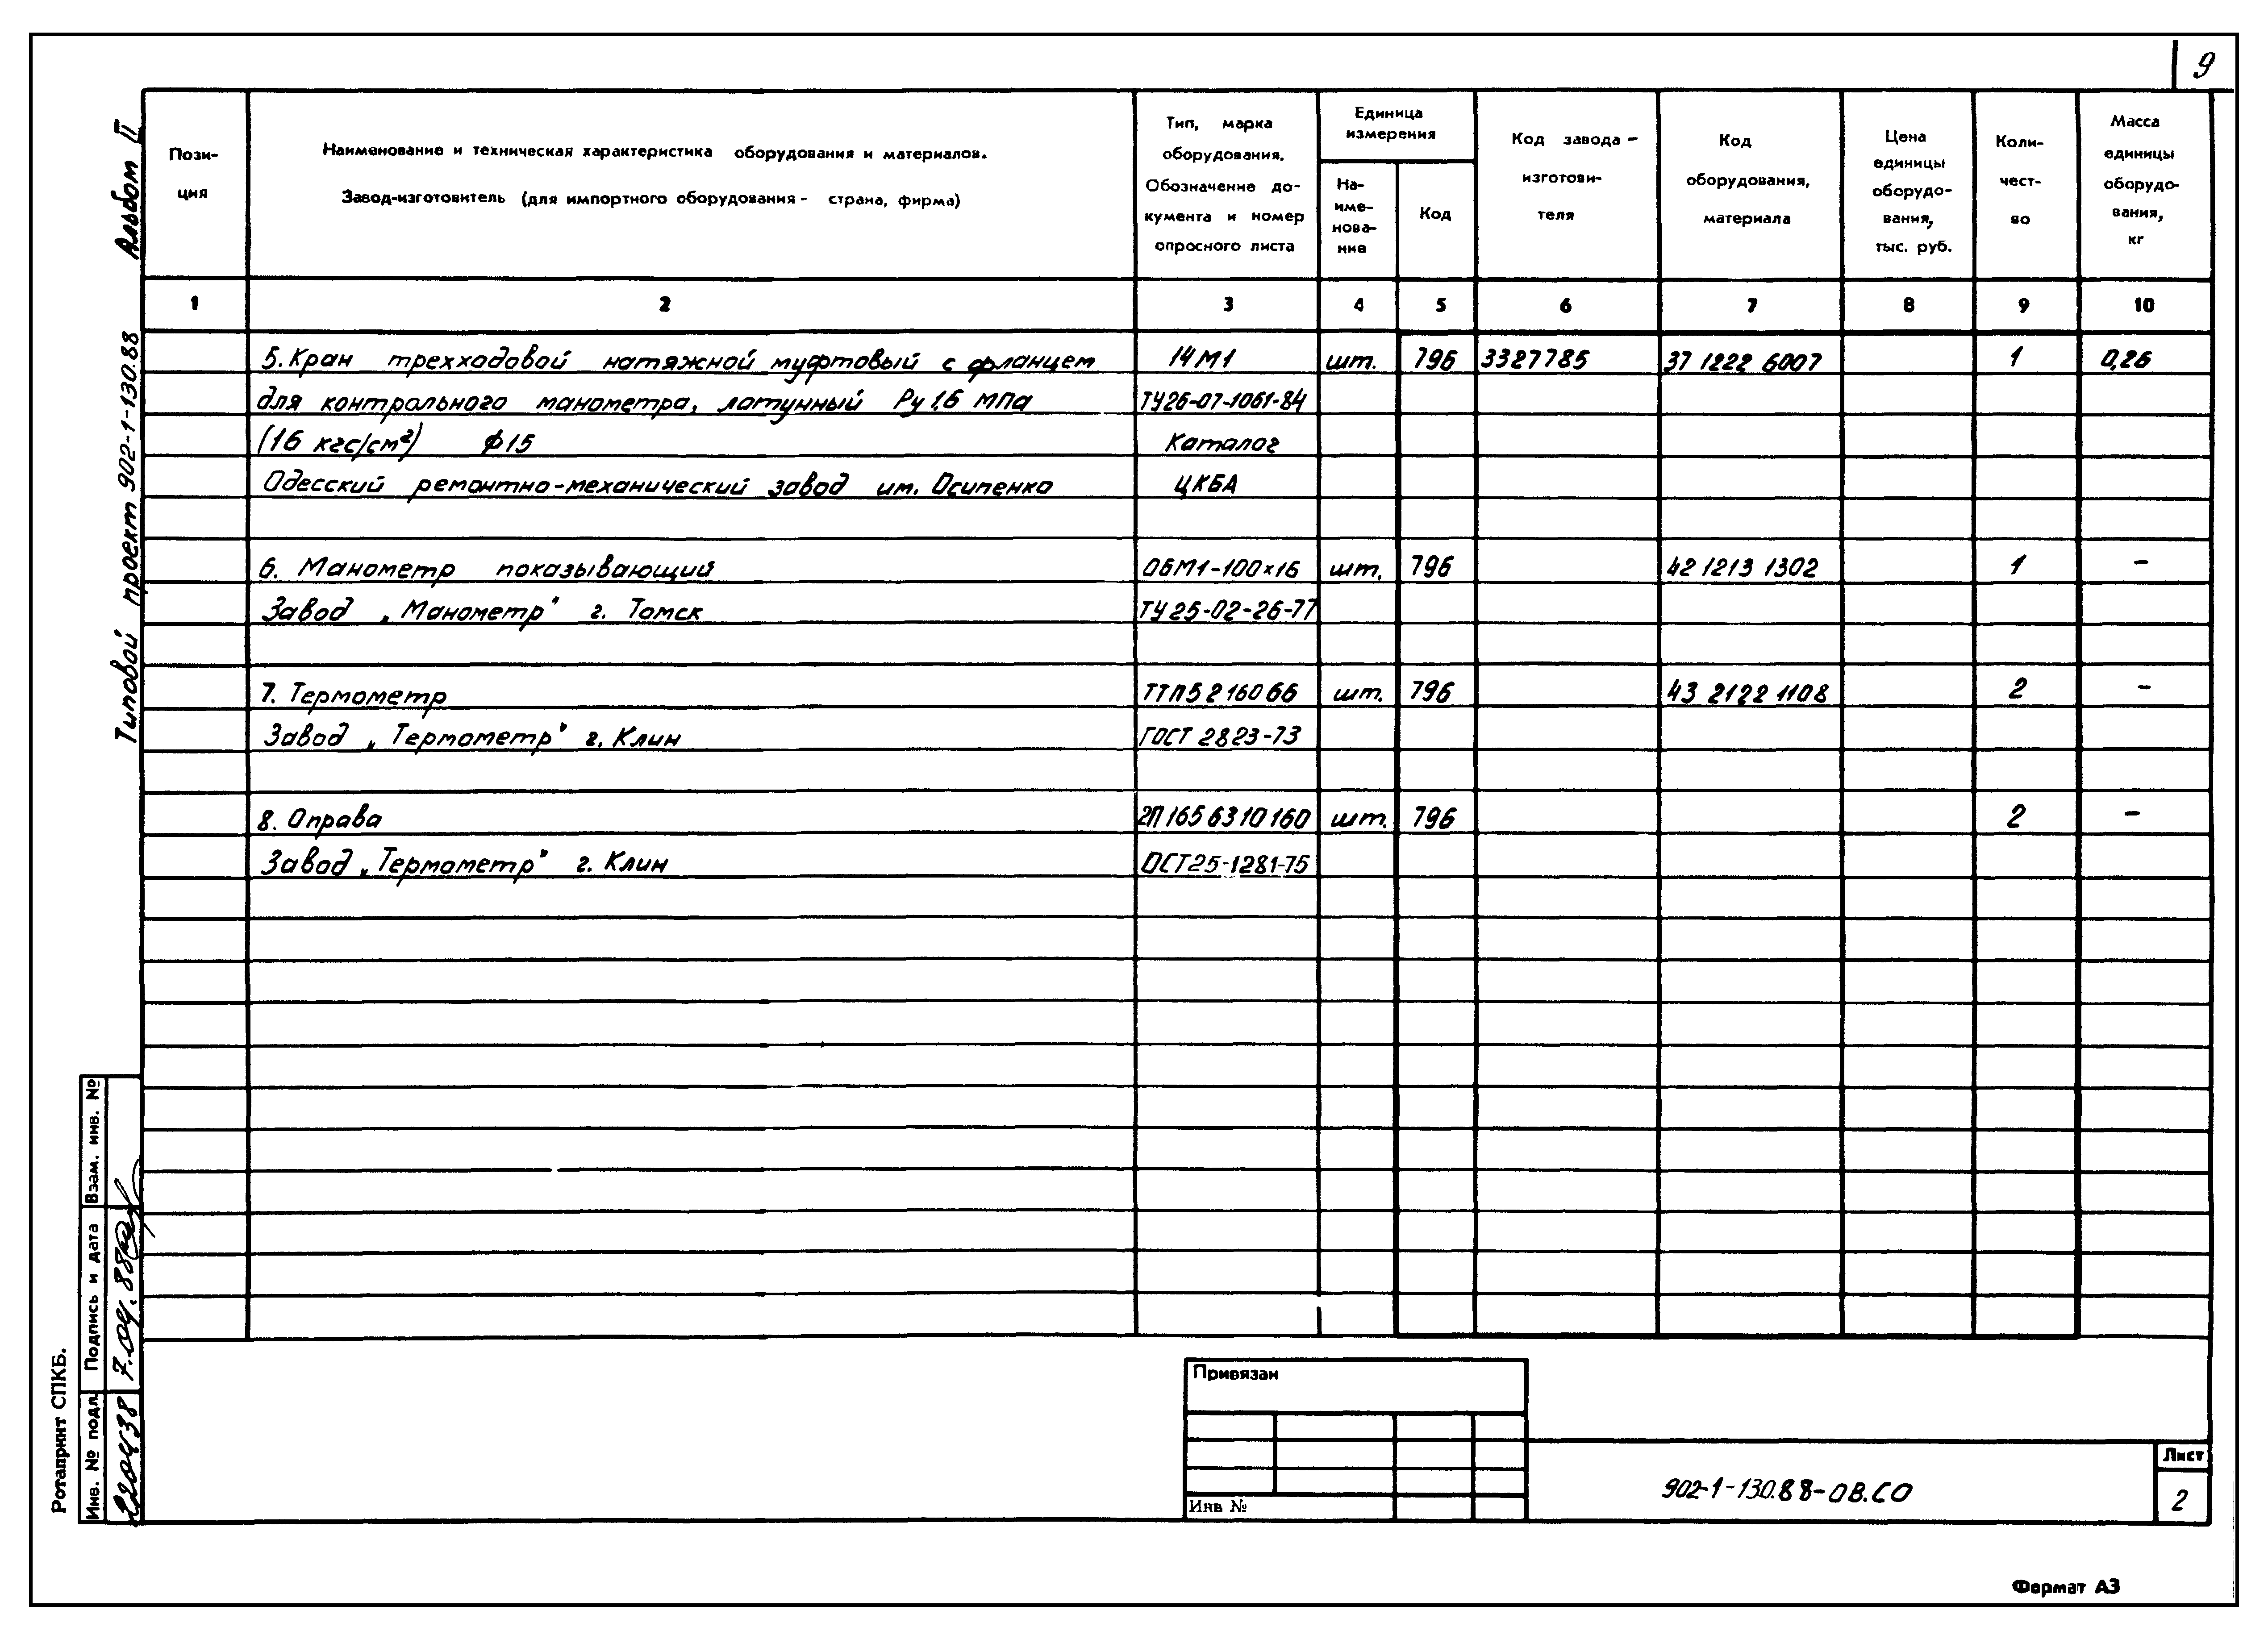 9
Типовой проект 902-1-130.88 Альбом II
Пози-
ция
Наименование и техническая характеристика оборудования и материалов.
Завод-изготовитель (для импортного оборудования - страна, фирма)
Тип, марка
оборудования.
Обозначение до-
кумента и номер
опросного листа
Единица
измерения
На-
име-
нова-
ние
Код
Код завода-
изготови-
теля
Код
оборудования,
материала
Цена
единицы
оборудо-
вания,
тыс. руб.
Коли-
чест-
во
Масса
единицы
оборудо-
вания,
кг
1 2 3 4 5 6 7 8 9 10
5. Кран трехходовой натяжной муфтовый с фланцем 14М1 шт. 796 3327785 37 1222 6007 1 0,26
для контрольного манометра, латунный Ру 1,6 МПа ТУ26-07-1061-84
(16 кгс/см²) ф15 Каталог
Одесский ремонтно-механический завод им. Осипенко ЦКБА
6. Манометр показывающий ОБМ1-100×16 шт. 796 42 1213 1302 1 –
Завод „Манометр" г. Томск ТУ25-02-26-77
7. Термометр ТТП5 2 160 66 шт. 796 43 2122 1108 2 –
Завод „Термометр" г. Клин ГОСТ 2823-73
8. Оправа 2П 165 63 10 160 шт. 796 2 –
Завод „Термометр" г. Клин ОСТ25-1281-75
Взам. инв. №
Подпись и дата
Инв. № подл.
Ротапринт СПКБ.
Привязан
Инв №
902-1-130.88-ОВ.СО
Лист
2
Формат А3